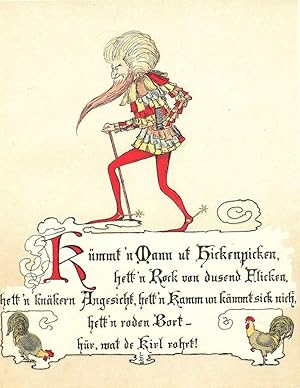 Kümmt 'n Mann ut Hickenpicken,
hett 'n Rock von dusend Flicken,
hett 'n knäkern Angesicht, hett 'n Kamm un kämmt sick nich,
hett 'n roden Bort –
hür, wat de Kirl rohrt!